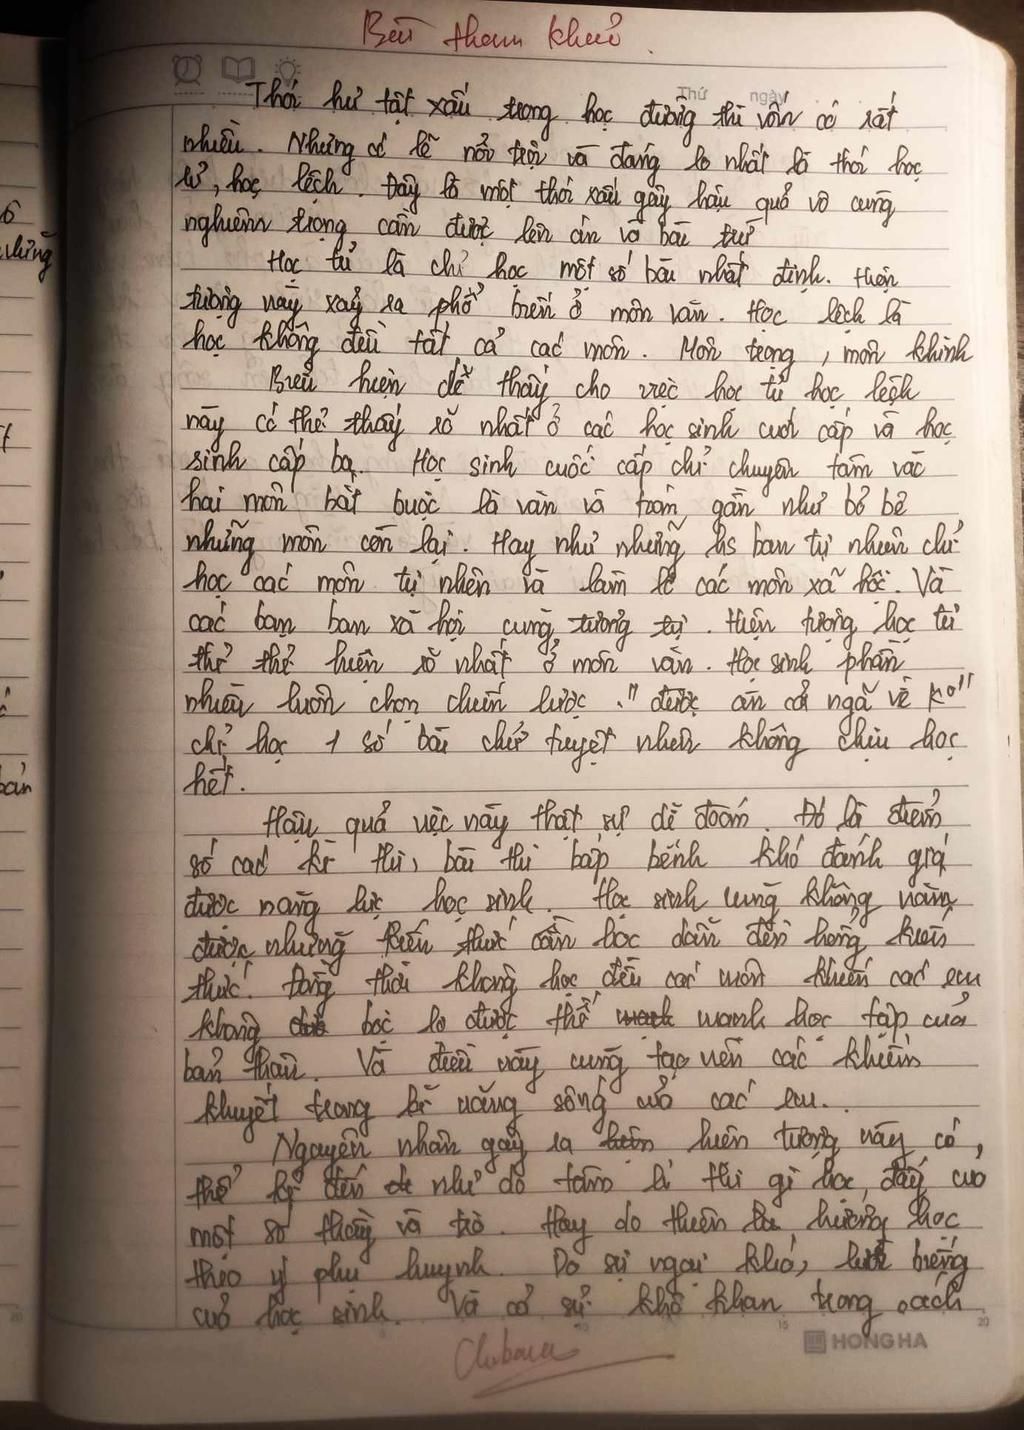 Bài tham khảo.
Thứ ngày
Thói hư tật xấu trong học đường thì vốn có rất
nhiều. Nhưng có lẽ nổi trội và đáng lo nhất là thói học
tủ, học lệch. Đây là một thói xấu gây hậu quả vô cùng
nghiêm trọng cần được lên án và bài trừ
Học tủ là chỉ học một số bài nhất định. Hiện
tượng này xảy ra phổ biến ở môn văn. Học lệch là
học không đều tất cả các môn. Môn trọng, môn khinh
Biểu hiện dễ thấy cho việc học tủ học lệch
này có thể thấy rõ nhất ở các học sinh cuối cấp và học
sinh cấp ba. Học sinh cuối cấp chỉ chuyên tâm vào
hai môn bắt buộc là văn và toán, gần như bỏ bê
những môn còn lại. Hay như những hs ban tự nhiên chỉ
học các môn tự nhiên và làm lơ các môn xã hội. Và
các bạn ban xã hội cũng tương tự. Hiện tượng học tủ
thể hiện rõ nhất ở môn văn. Học sinh phần
nhiều luôn chọn chiến lược "được ăn cả ngã về ko"
chỉ học 1 số bài chứ tuyệt nhiên không chịu học
hết.
Hậu quả việc này thật sự dễ đoán. Đó là điểm
số các kì thi, bài thi bấp bênh khó đánh giá
được năng lực học sinh. Học sinh cũng không nắm
được những kiến thức cần học dẫn đến hổng kiến
thức. Đồng thời không học đều các môn khiến các em
không bộc lộ được thế mạnh học tập của
bản thân. Và điều này cũng tạo nên các khiếm
khuyết trong kĩ năng sống của các em.
Nguyên nhân gây ra hiện tượng này có
thể kể đến như do tâm lí thi gì học đấy của
một số thầy và trò. Hay do thiên hướng học
theo ý phụ huynh. Do sự ngại khó, lười biếng
của học sinh. Và cả sự khô khan trong cách
15
20
HONG HA